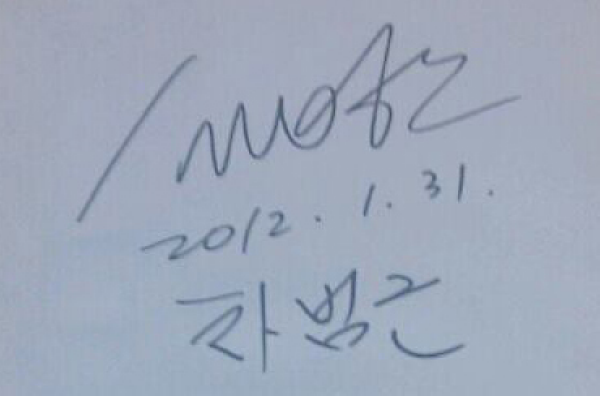 2012.1.31.
차범근